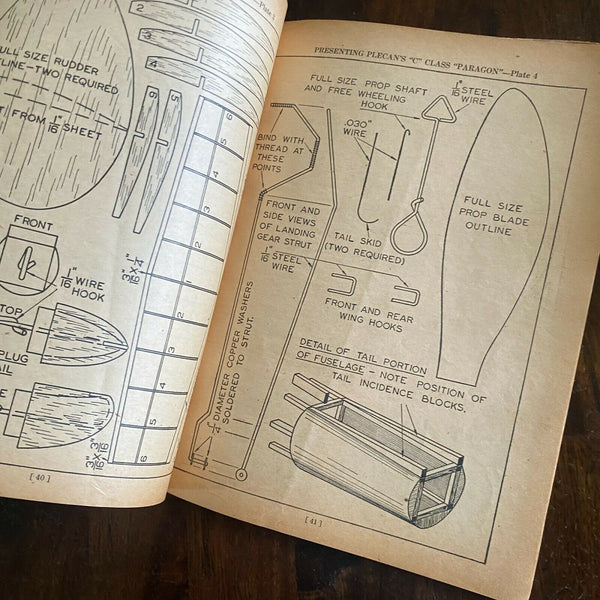 —Plate 3
FULL SIZE RUDDER
OUTLINE—TWO REQUIRED
FROM 1/16" SHEET
2
3
4
5
6
6
5
2
1
1
2
3
5
6
3/16" X 1/4"
FRONT
1/16" WIRE
HOOK
TOP
PLUG
3/16" X 3/16"
[ 40 ]
PRESENTING PLECAN'S "C" CLASS "PARAGON"—Plate 4
FULL SIZE PROP SHAFT
AND FREE WHEELING
HOOK
1/16" STEEL
WIRE
.030"
WIRE
BIND WITH
THREAD AT
THESE
POINTS
FULL SIZE
PROP BLADE
OUTLINE
FRONT AND
SIDE VIEWS
OF LANDING
GEAR STRUT
1/16" STEEL
WIRE
TAIL SKID
(TWO REQUIRED)
FRONT AND REAR
WING HOOKS
1/4" DIAMETER COPPER WASHERS
SOLDERED TO STRUT.
DETAIL OF TAIL PORTION
OF FUSELAGE – NOTE POSITION OF
TAIL INCIDENCE BLOCKS.
[ 41 ]